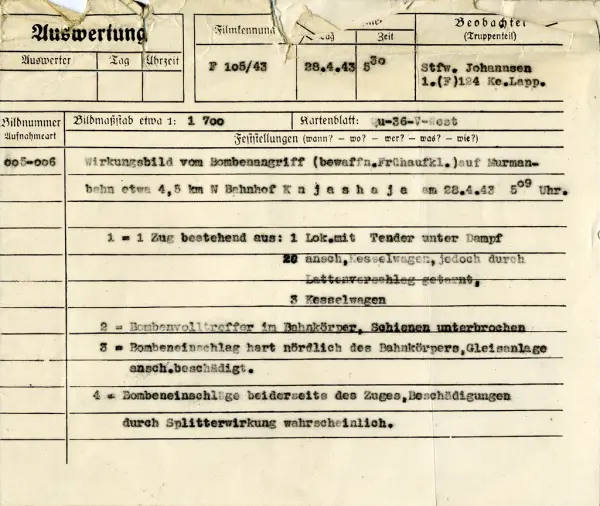 Auswertung
Filmkennung
Tag
Zeit
Beobachter
(Truppenteil)
Auswerter
Tag
Uhrzeit
F 105/43
28.4.43
5³⁰
Stfw. Johannsen
1.(F)124 Ke.Lapp.
Bildnummer
Aufnahmeart
Bildmaßstab etwa 1: 1 700
Kartenblatt: Qu-36-V-West
Feststellungen (wann? – wo? – wer? – was? – wie?)
005-006
Wirkungsbild vom Bombenangriff (bewaffn.Frühaufkl.)auf Murman-
bahn etwa 4,5 km N Bahnhof K n j a s h a j a am 28.4.43 5⁰⁹ Uhr.
1 = 1 Zug bestehend aus: 1 Lok.mit Tender unter Dampf
20 ansch.Kesselwagen,jedoch durch
Lattenverschlag getarnt,
3 Kesselwagen
2 = Bombenvolltreffer im Bahnkörper, Schienen unterbrochen
3 = Bombeneinschlag hart nördlich des Bahnkörpers,Gleisanlage
ansch.beschädigt.
4 = Bombeneinschläge beiderseits des Zuges,Beschädigungen
durch Splitterwirkung wahrscheinlich.